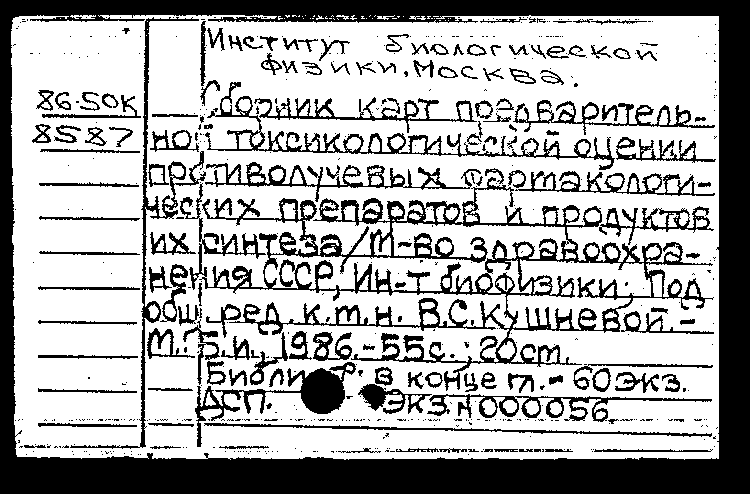 Институт биологической
физики, Москва.
86-50К
8587
Сборник карт предваритель-
ной токсикологической оценки
противолучевых фармакологи-
ческих препаратов и продуктов
их синтеза/М-во здравоохра-
нения СССР, Ин-т биофизики; Под
общ. ред. к.т.н. В.С.Кушневой.-
М.: Б.и., 1986.-55с.; 20см.
в конце гл.- 60экз.
ДСП. Экз.N000056.